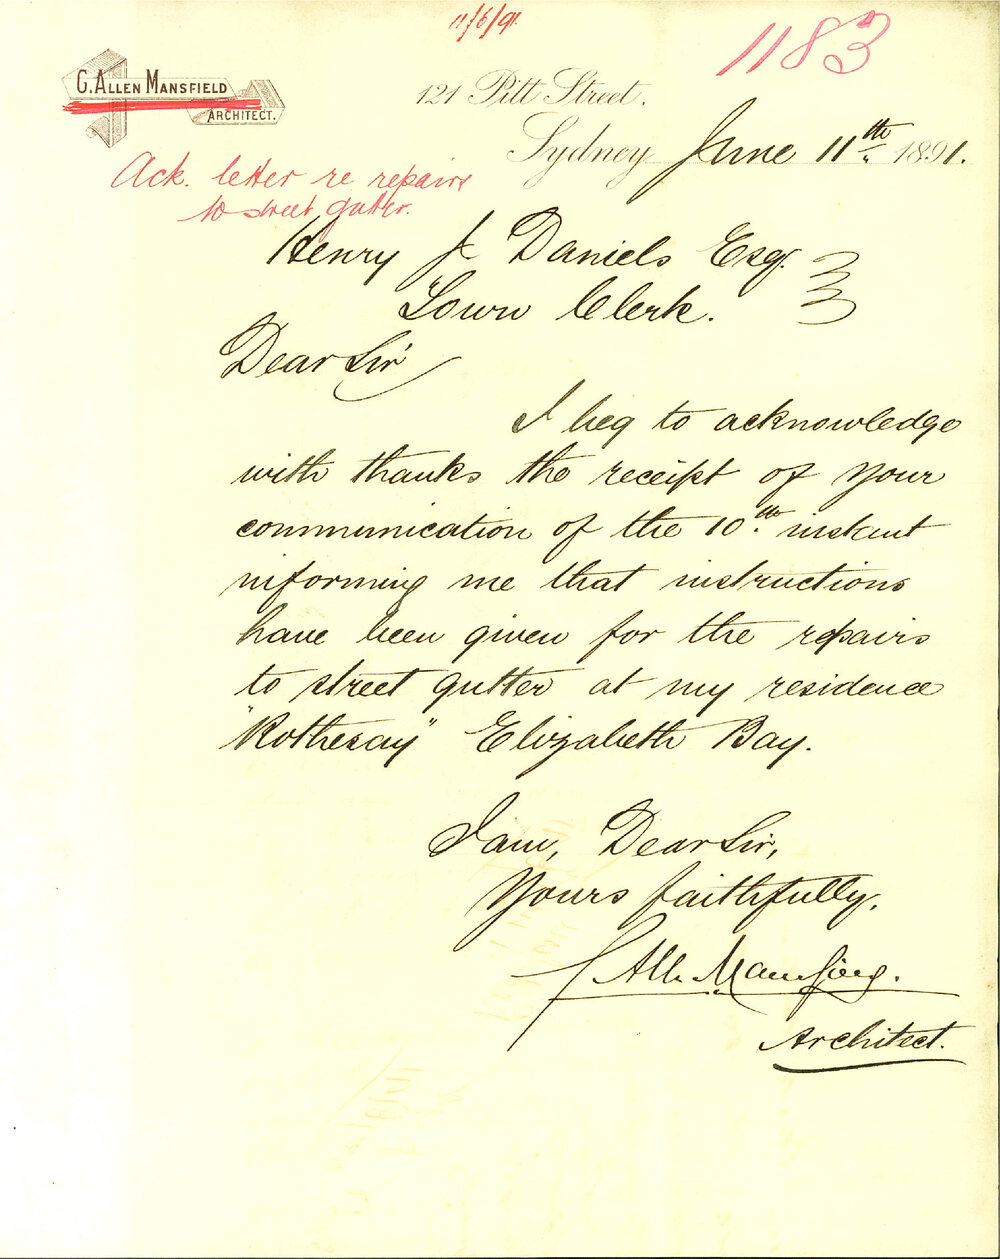 11/6/91.
1183
G. ALLEN MANSFIELD
ARCHITECT.
121 Pitt Street.
Sydney June 11th. 1891.
Ack. letter re repairs
to street gutter.
Henry J Daniels Esq.
Town Clerk.
Dear Sir
I beg to acknowledge
with thanks the receipt of your
communication of the 10th instant
informing me that instructions
have been given for the repairs
to street gutter at my residence
"Rothesay" Elizabeth Bay.
I am, Dear Sir,
Yours faithfully,
G Allen Mansfield.
Architect.